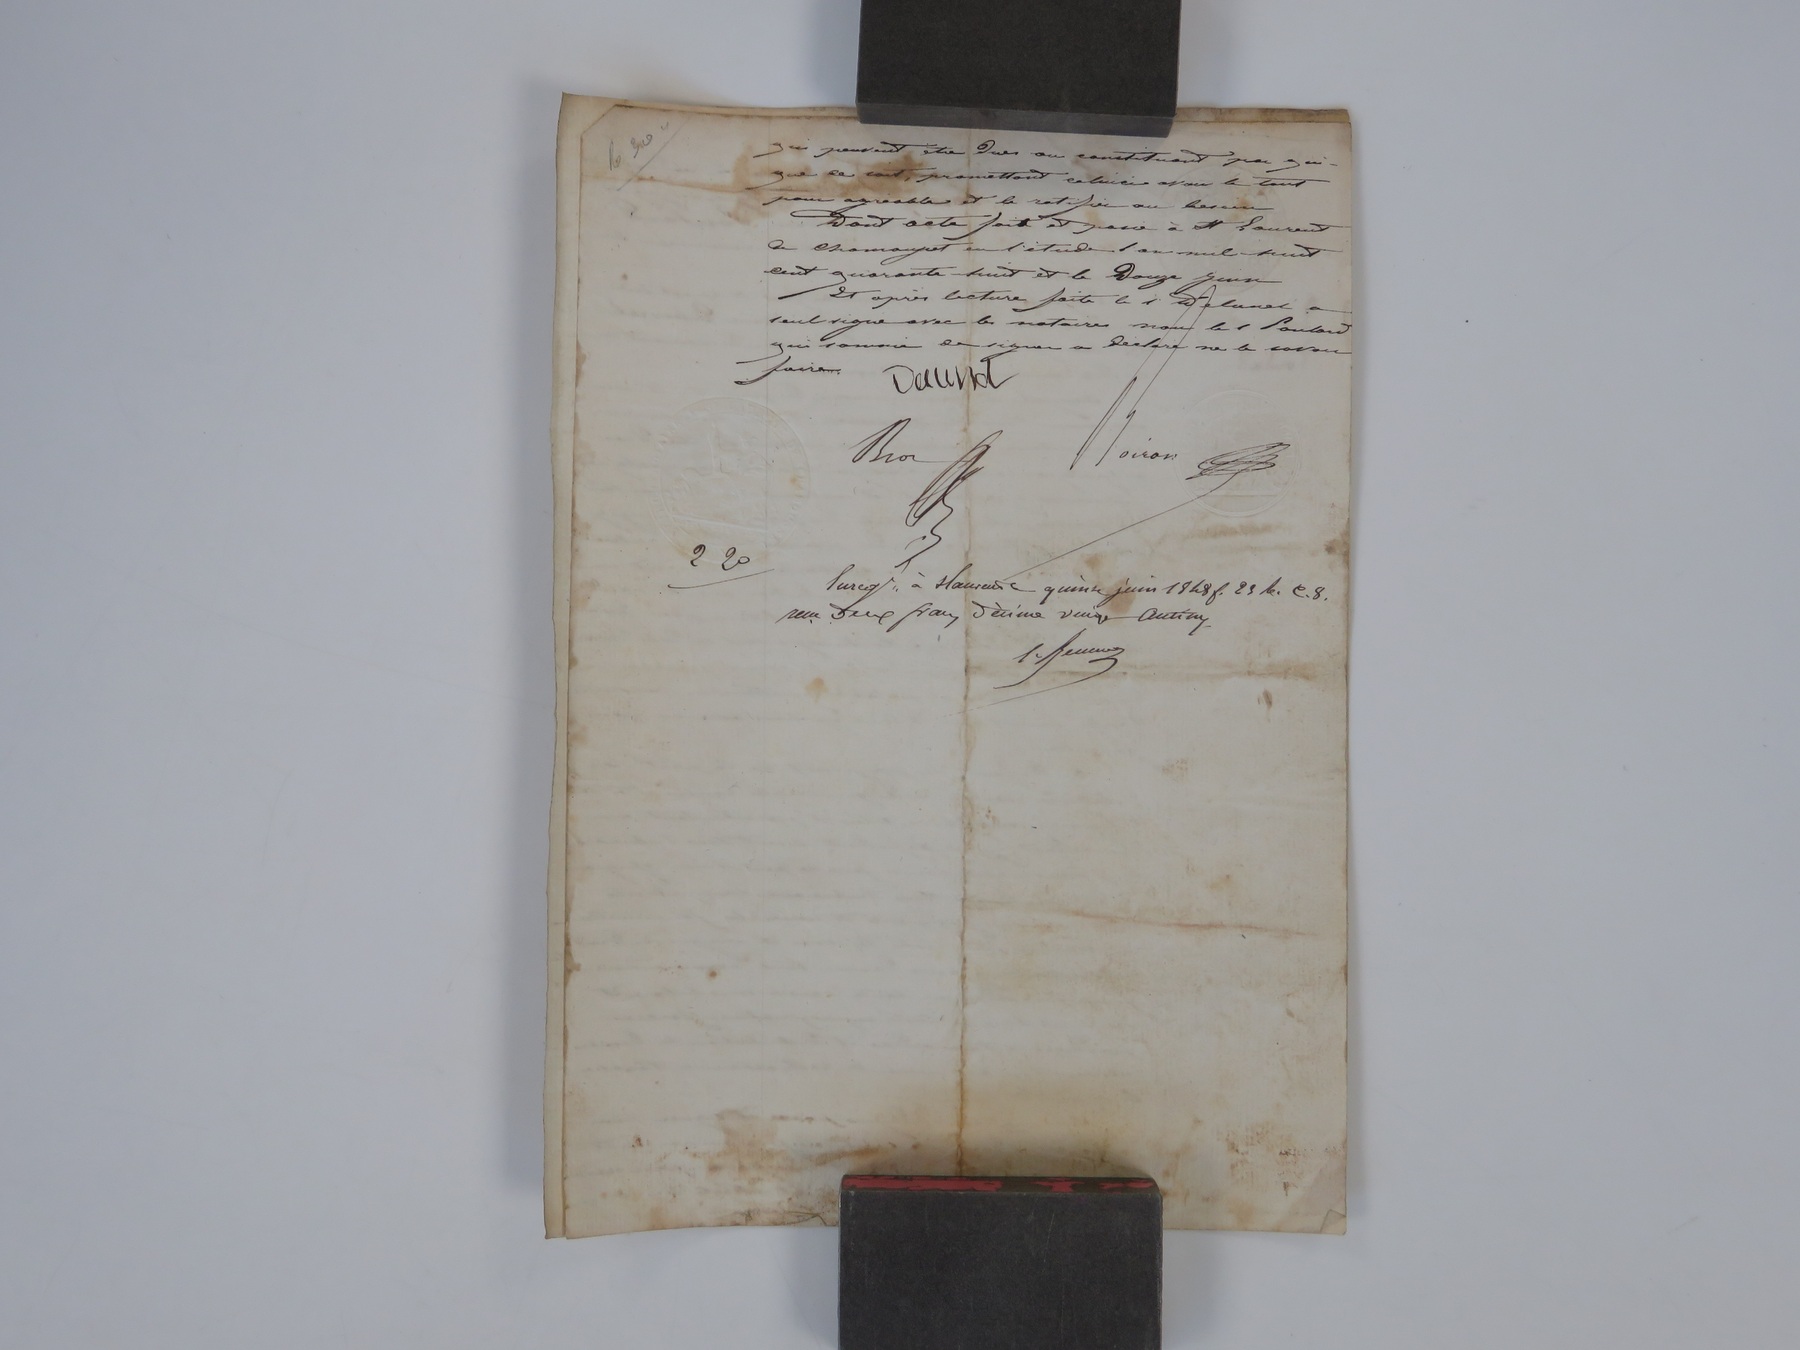 qui peuvent être dues au constituant par qui-
que ce soit, promettant celui-ci avoir le tout
pour agréable et le ratifier au besoin
Dont acte fait et passé à St Laurent
de chamousset en l'étude l'an mil huit
cent quarante huit et le Douze Juin
Et après lecture faite le s a
seul signé avec les notaires non le s
qui sommé de signer a déclaré ne le savoir
faire.
2 20
à quinze juin 1848 f. 23 C. 8.
reçu Deux francs Décime vingt Centimes